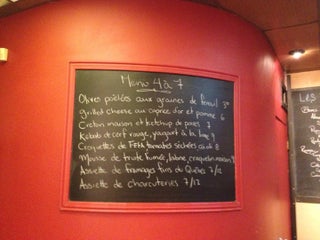 Menu 4 à 7
Olives poêlées aux graines de fenouil 3
Grilled cheese au caprice d'or et pomme 6
Creton maison et ketchup de poires 7
Kebab de cerf rouge, yogourt à la lime 9
Croquettes de FETA tomates séchées 8
Mousse de truite fumée, labne, craquelin maison
Assiette de fromages fins du Québec 7/12
Assiette de charcuteries 7/12
LES